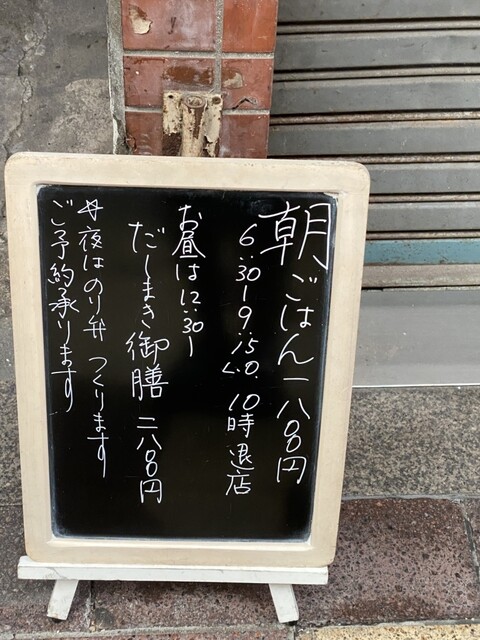 朝ごはん一八〇〇円
6:30〜9:15L.O. 10時退店
お昼は12:30〜
だしまき御膳 二八〇〇円
夜はのり弁つくります
ご予約承ります